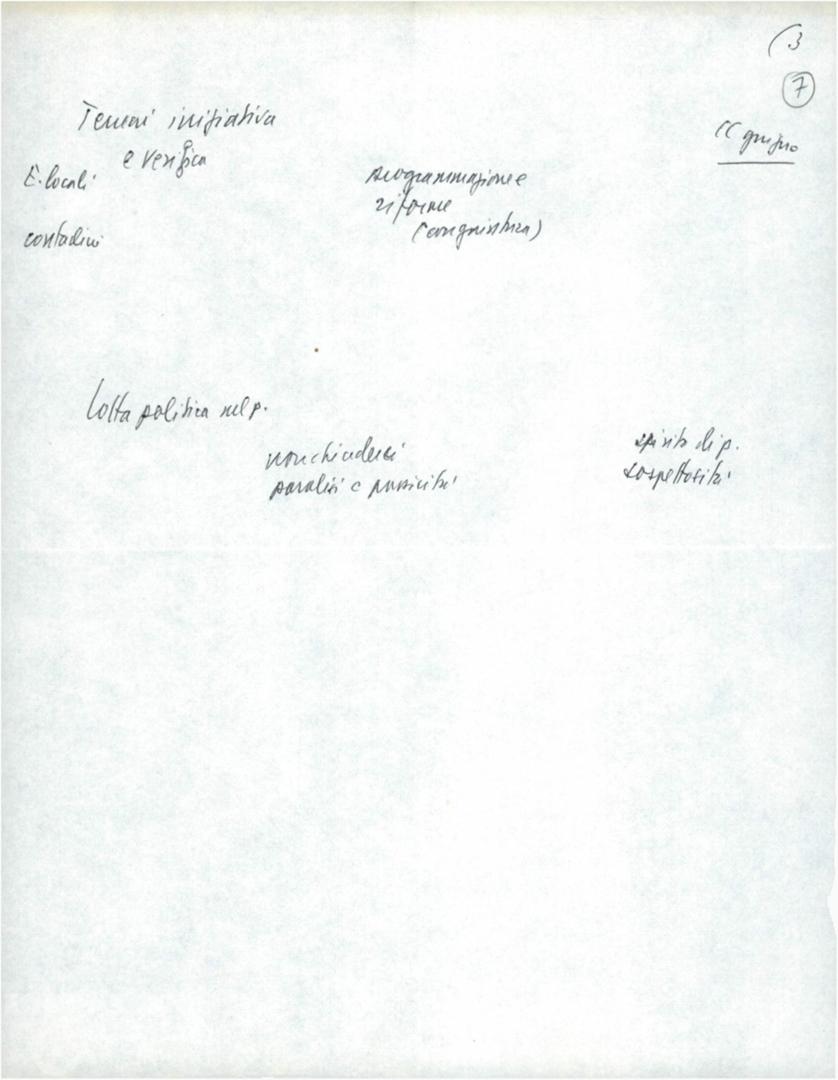 (3
7
CC giugno
Terreni iniziativa
e verifica
E. locali
contadini
programmazione
riforme
(congiuntura)
Lotta politica nel p.
non chiuderci
paralisi e passività
spirito di p.
sospettosità